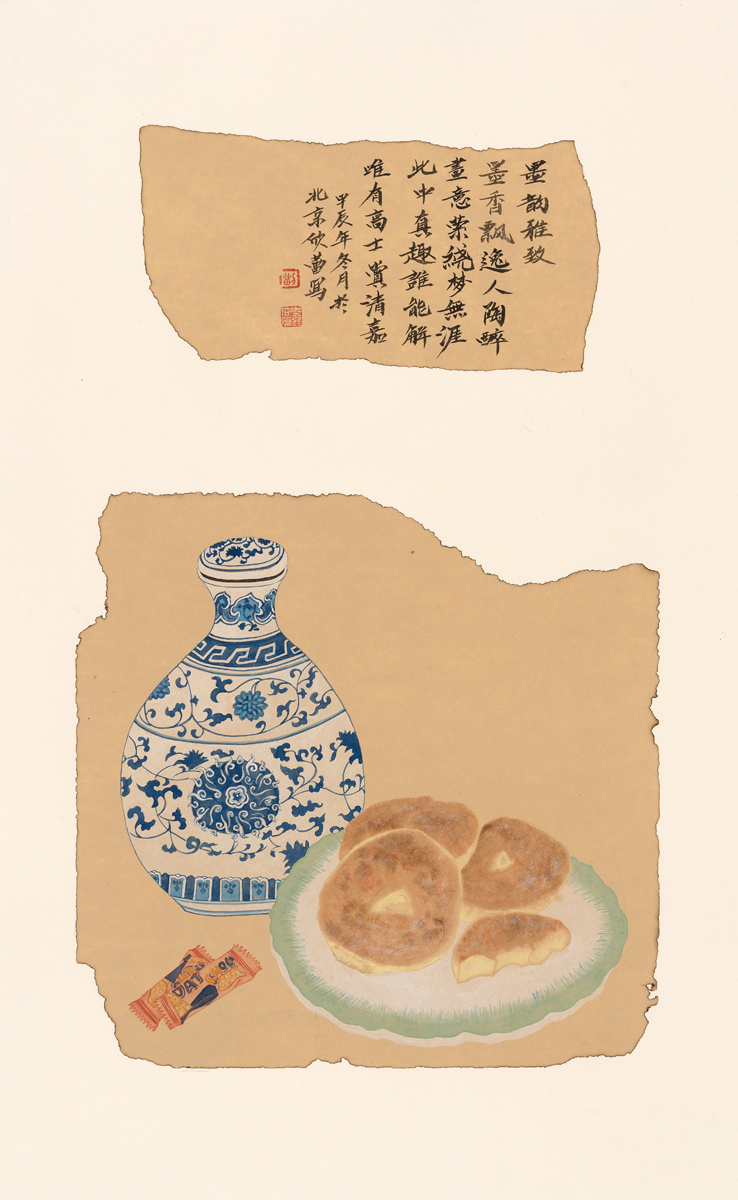 墨韵雅致
墨香飘逸人陶醉
畫意萦繞梦無涯
此中真趣誰能解
唯有高士賞清嘉
甲辰年冬月於
北京欣蕾寫
OAT